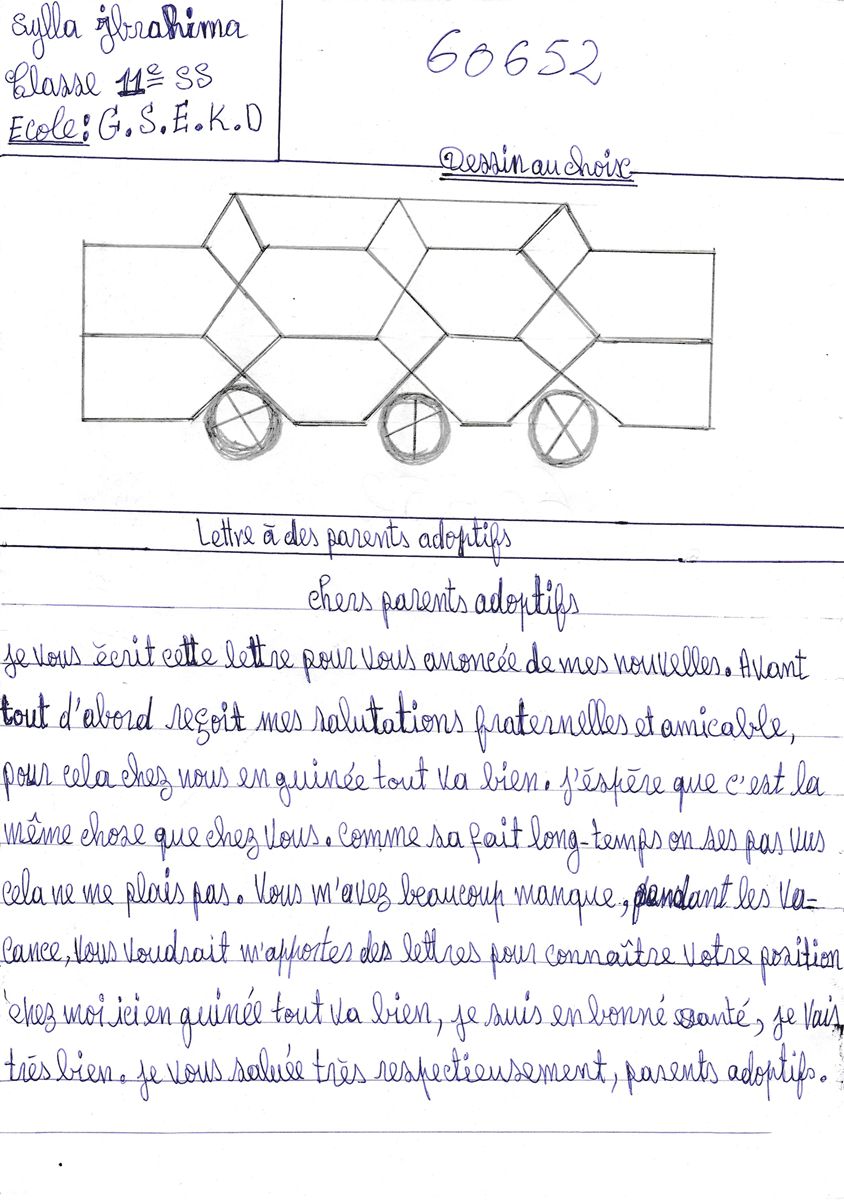 Sylla ibrahima
Classe 11e SS
Ecole: G.S.E.K.D
60652
Dessin au choix
Lettre à des parents adoptifs
chers parents adoptifs
je vous écrit cette lettre pour vous anoncée de mes nouvelles. Avant
tout d'abord reçoit mes salutations fraternelles et amicable,
pour cela chez nous en guinée tout va bien. j'éspère que c'est la
même chose que chez vous. comme sa fait long-temps on ses pas vus
cela ne me plais pas. Vous m'avez beaucoup manque, pendant les va=
cance, vous voudrait m'apportes des lettres pour connaître votre position
chez moi ici en guinée tout va bien, je suis en bonné santé, je vais
très bien. je vous saluée très respectieusement, parents adoptifs.